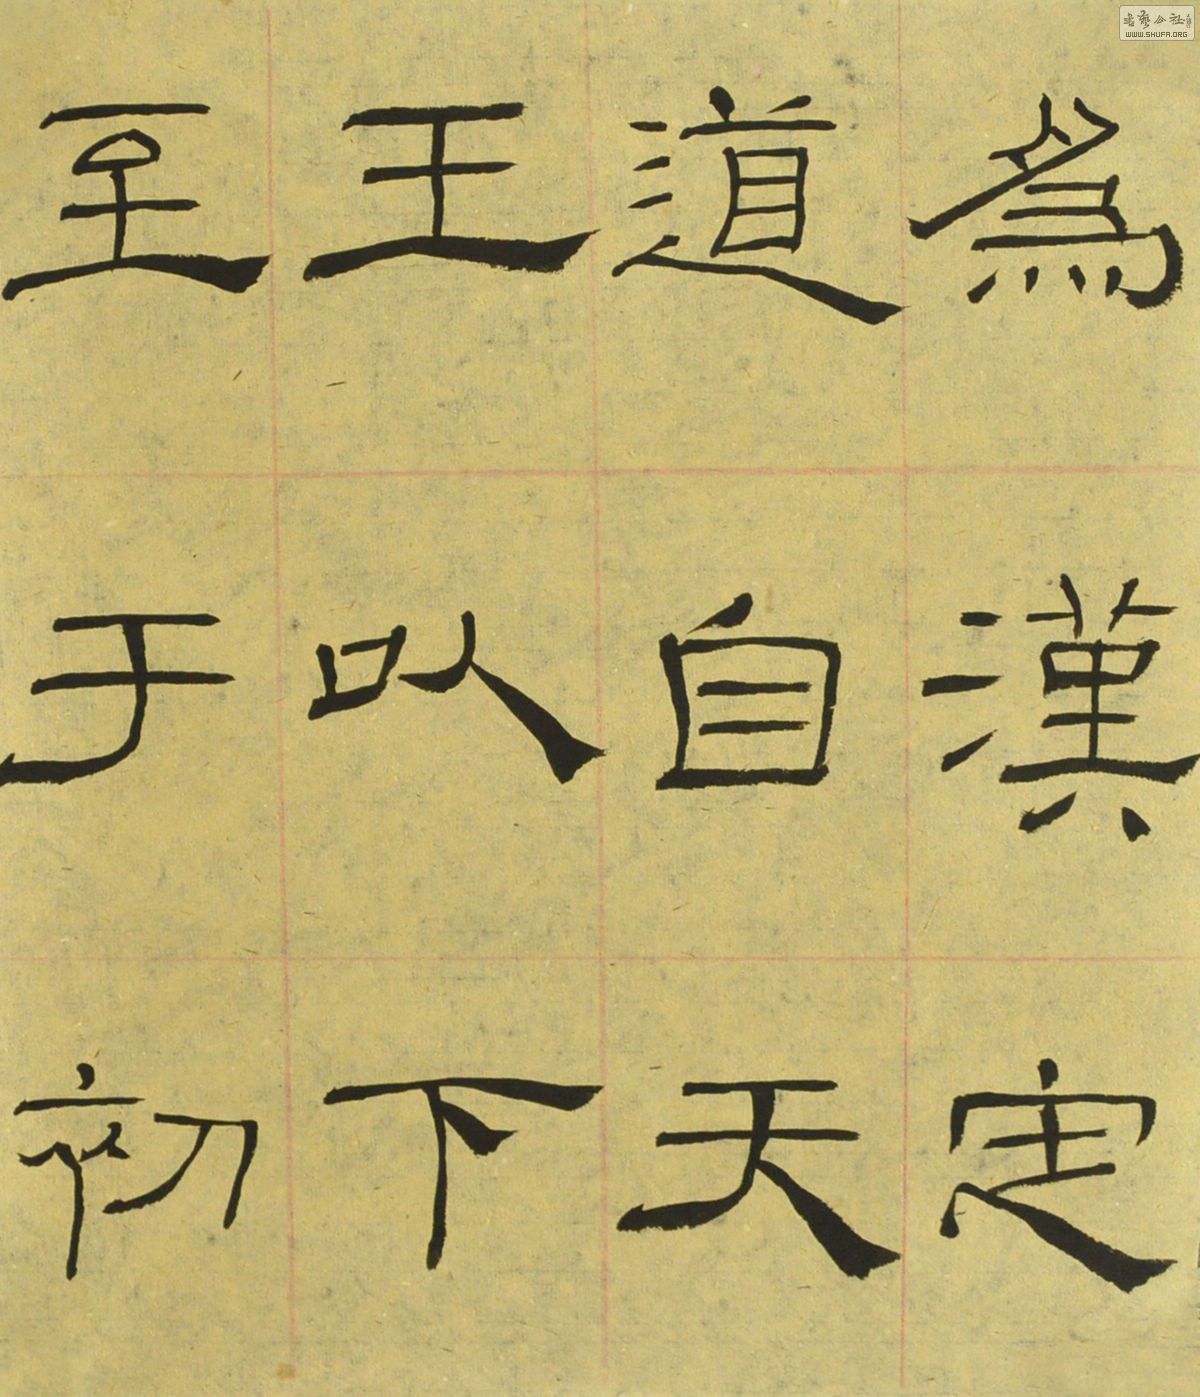 為漢定
道自天
王以下
至于初
書藝公社
WWW.SHUFA.ORG